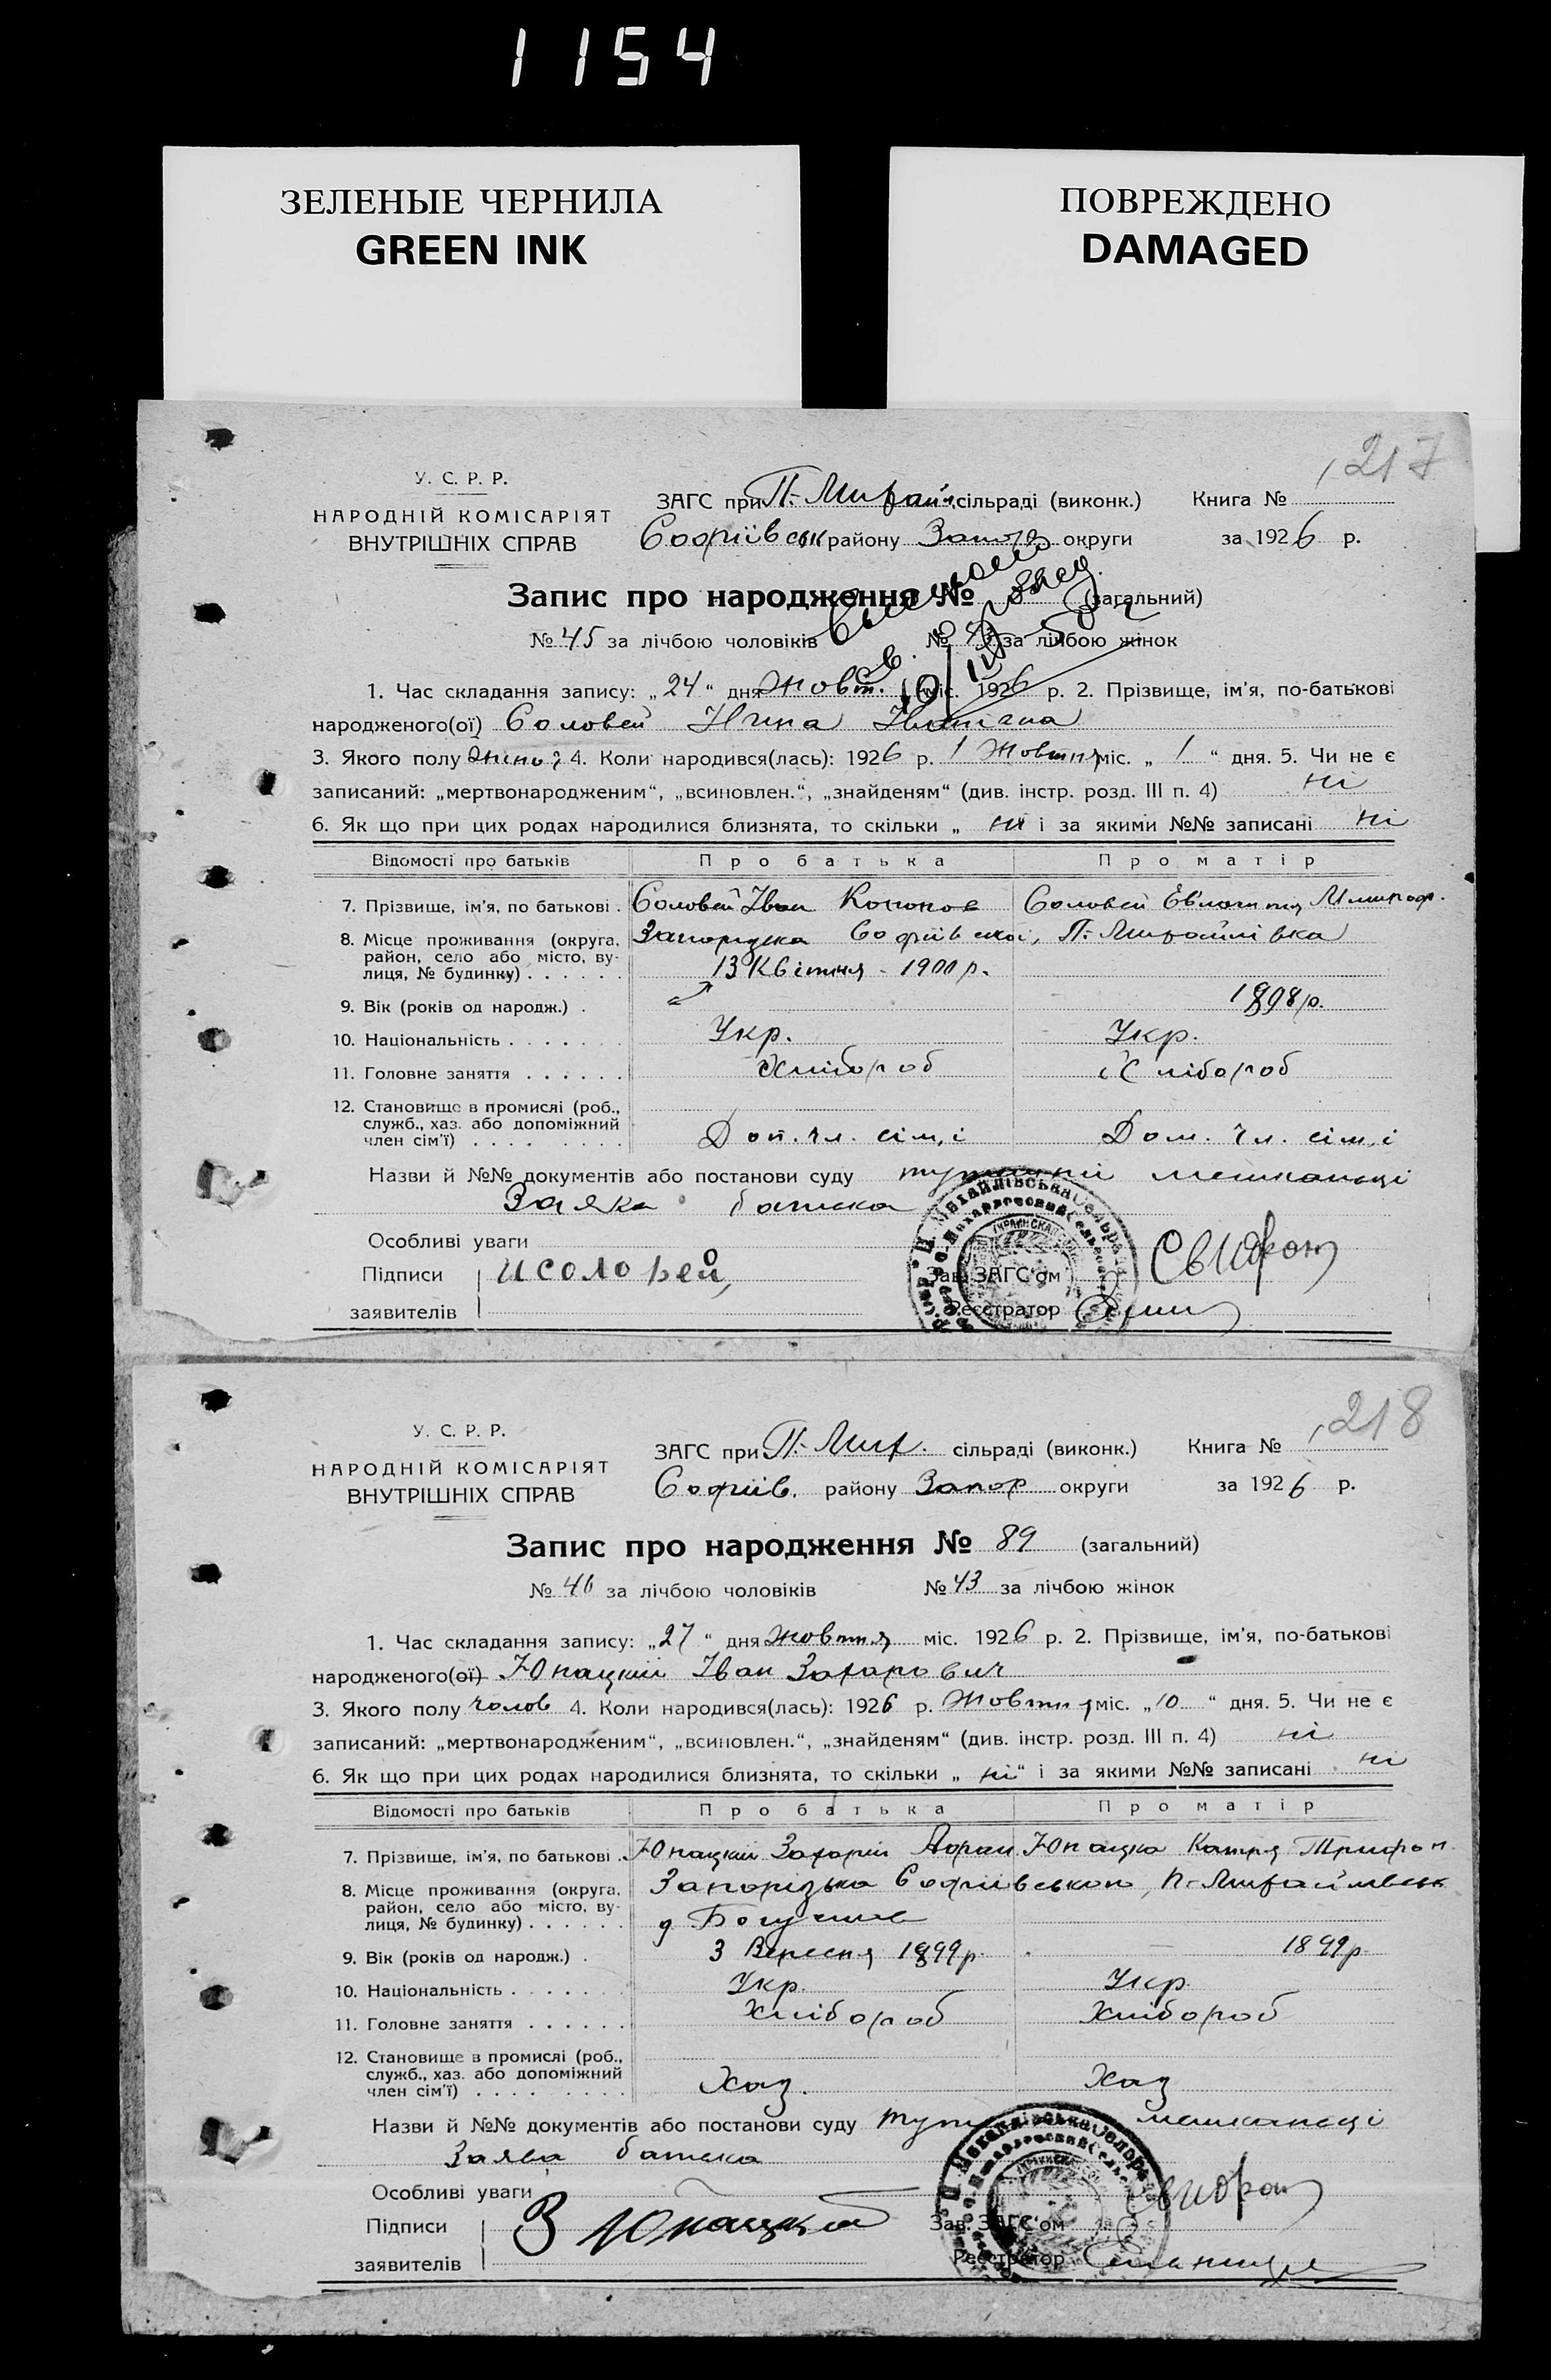 1154
ЗЕЛЕНЫЕ ЧЕРНИЛА
GREEN INK
ПОВРЕЖДЕНО
DAMAGED
217
У. С. Р. Р.
НАРОДНІЙ КОМІСАРІЯТ
ВНУТРІШНІХ СПРАВ
ЗАГС при П.-Михайл. сільраді (виконк.) Книга №
Софіївськ району Запор округи за 1926 р.
Запис про народження № 88 (загальний)
№ 45 за лічбою чоловіків № 43 за лічбою жінок
1. Час складання запису: „24“ дня Жовт. міс. 1926 р. 2. Прізвище, ім'я, по-батькові
народженого(ої) Соловей
3. Якого полу жіноч 4. Коли народився(лась): 1926 р. 1 Жовтня міс. „1“ дня. 5. Чи не є
записаний: „мертвонародженим“, „всиновлен.“, „знайденям“ (див. інстр. розд. III п. 4) ні
6. Як що при цих родах народилися близнята, то скільки „ні і за якими №№ записані ні
Відомості про батьків Про батька Про матір
7. Прізвище, ім'я, по батькові . Соловей Іван Кононов Соловей
8. Місце проживання (округа, район, село або місто, вулиця, № будинку) . . . . . Запорізька Софіївської, П.-Михайлівка
13 Квітня - 1900 р.
9. Вік (років од народж.) . 1898 р.
10. Національність . . . . . . . Укр. Укр.
11. Головне заняття . . . . . . Хлібороб Хлібороб
12. Становище в промислі (роб., служб., хаз. або допоміжний член сім'ї) . . . . . . . . Доп. чл. сім,ї Доп. чл. сім,ї
Назви й №№ документів або постанови суду мешканьці
Заяка батька
Особливі уваги
Підписи ИСоловей,
Зав. ЗАГС'ом
заявителів
Реєстратор
218
У. С. Р. Р.
НАРОДНІЙ КОМІСАРІЯТ
ВНУТРІШНІХ СПРАВ
ЗАГС при П.-Мих. сільраді (виконк.) Книга №
Софіїв. району Запор округи за 1926 р.
Запис про народження № 89 (загальний)
№ 46 за лічбою чоловіків № 43 за лічбою жінок
1. Час складання запису: „27“ дня жовтня міс. 1926 р. 2. Прізвище, ім'я, по-батькові
народженого(ої) Юнацкий Іван Захарович
3. Якого полу чолов 4. Коли народився(лась): 1926 р. Жовтня міс. „10“ дня. 5. Чи не є
записаний: „мертвонародженим“, „всиновлен.“, „знайденям“ (див. інстр. розд. III п. 4) ні
6. Як що при цих родах народилися близнята, то скільки „ні“ і за якими №№ записані ні
Відомості про батьків Про батька Про матір
7. Прізвище, ім'я, по батькові . Юнацкий Захарий Юнацка Катря Трифон
8. Місце проживання (округа, район, село або місто, вулиця, № будинку) . . . . . . Запорізька Софиівського, П.-Михайлівськ
9. Вік (років од народж.) . 3 Вересня 1899 р. 1899 р
10. Національність . . . . . . . Укр. Укр.
11. Головне заняття . . . . . . Хлібороб Хлібороб
12. Становище в промислі (роб., служб., хаз. або допоміжний член сім'ї) . . . . . . . . Хаз. Хаз
Назви й №№ документів або постанови суду мешканьці
Заява батька
Особливі уваги
Підписи З Юнацкий
Зав. ЗАГС'ом
заявителів
Реєстратор